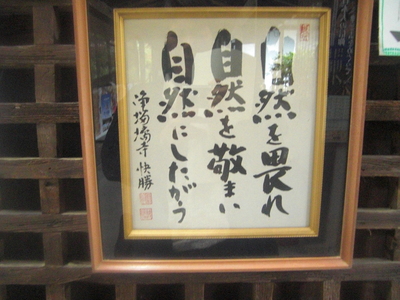 自然を畏れ
自然を敬まい
自然にしたがう
快勝